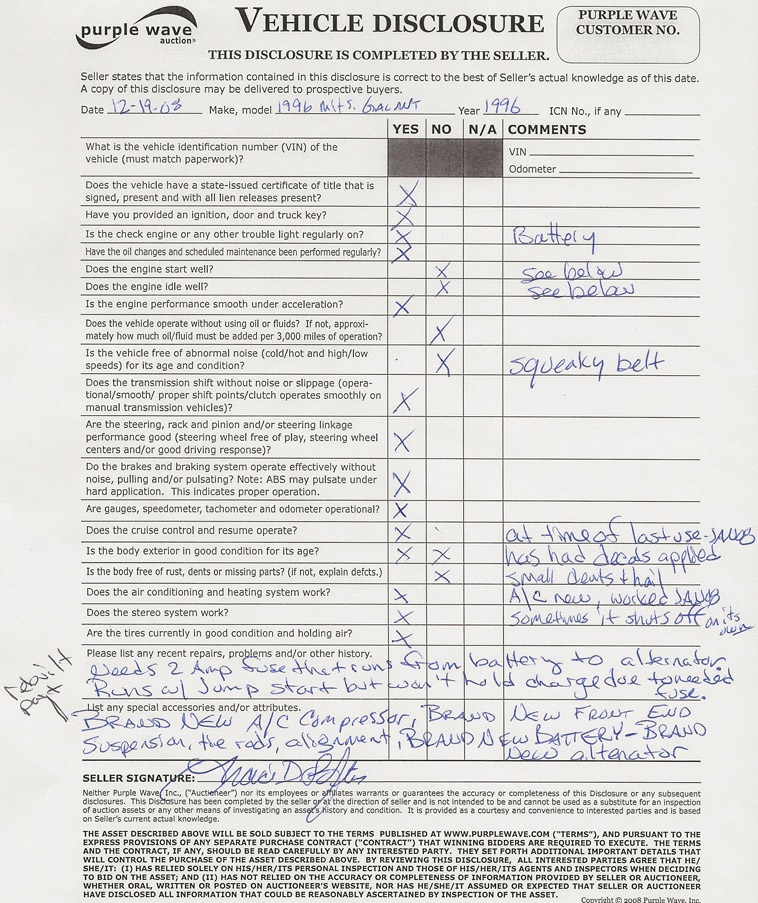 purple wave
auction®
VEHICLE DISCLOSURE
THIS DISCLOSURE IS COMPLETED BY THE SELLER.
PURPLE WAVE
CUSTOMER NO.
Seller states that the information contained in this disclosure is correct to the best of Seller's actual knowledge as of this date.
A copy of this disclosure may be delivered to prospective buyers.
Date 12-19-08 Make, model 1996 Mits. GALANT Year 1996 ICN No., if any
YES NO N/A COMMENTS
What is the vehicle identification number (VIN) of the
vehicle (must match paperwork)?
VIN
Odometer
Does the vehicle have a state-issued certificate of title that is
signed, present and with all lien releases present? X
Have you provided an ignition, door and truck key? X
Is the check engine or any other trouble light regularly on? X Battery
Have the oil changes and scheduled maintenance been performed regularly? X
Does the engine start well? X see below
Does the engine idle well? X see below
Is the engine performance smooth under acceleration? X
Does the vehicle operate without using oil or fluids? If not, approxi-
mately how much oil/fluid must be added per 3,000 miles of operation? X
Is the vehicle free of abnormal noise (cold/hot and high/low
speeds) for its age and condition? X squeaky belt
Does the transmission shift without noise or slippage (opera-
tional/smooth/ proper shift points/clutch operates smoothly on
manual transmission vehicles)? X
Are the steering, rack and pinion and/or steering linkage
performance good (steering wheel free of play, steering wheel
centers and/or good driving response)? X
Do the brakes and braking system operate effectively without
noise, pulling and/or pulsating? Note: ABS may pulsate under
hard application. This indicates proper operation. X
Are gauges, speedometer, tachometer and odometer operational? X
Does the cruise control and resume operate? X at time of last use-
Is the body exterior in good condition for its age? X X has had decals applied
Is the body free of rust, dents or missing parts? (if not, explain defcts.) X small dents + hail
Does the air conditioning and heating system work? X A/C new, worked
Does the stereo system work? X sometimes it shuts off on its own
Are the tires currently in good condition and holding air? X
Please list any recent repairs, problems and/or other history.
Needs 2 Amp fuse that runs from battery to alternator.
Runs w/ Jump start but won't hold charge due to needed
fuse.
List any special accessories and/or attributes.
BRAND NEW A/C Compressor, BRAND NEW FRONT END
Suspension, tie rods, alignment, BRAND NEW BATTERY - BRAND
New altenator
SELLER SIGNATURE:
Neither Purple Wave, Inc., ("Auctioneer") nor its employees or affiliates warrants or guarantees the accuracy or completeness of this Disclosure or any subsequent
disclosures. This Disclosure has been completed by the seller or at the direction of seller and is not intended to and cannot be used as a substitute for an inspection
of auction assets or any other means of investigating an asset's history and condition. It is provided as a courtesy and convenience to interested parties and is based
on Seller's current actual knowledge.
THE ASSET DESCRIBED ABOVE WILL BE SOLD SUBJECT TO THE TERMS PUBLISHED AT WWW.PURPLEWAVE.COM ("TERMS"), AND PURSUANT TO THE
EXPRESS PROVISIONS OF ANY SEPARATE PURCHASE CONTRACT ("CONTRACT") THAT WINNING BIDDERS ARE REQUIRED TO EXECUTE. THE TERMS
AND THE CONTRACT, IF ANY, SHOULD BE READ CAREFULLY BY ANY INTERESTED PARTY. THEY SET FORTH ADDITIONAL IMPORTANT DETAILS THAT
WILL CONTROL THE PURCHASE OF THE ASSET DESCRIBED ABOVE. BY REVIEWING THIS DISCLOSURE, ALL INTERESTED PARTIES AGREE THAT HE/
SHE/IT: (I) HAS RELIED SOLELY ON HIS/HER/ITS PERSONAL INSPECTION AND THOSE OF HIS/HER/ITS AGENTS AND INSPECTORS WHEN DECIDING
TO BID ON THE ASSET; AND (II) HAS NOT RELIED ON THE ACCURACY OR COMPLETENESS OF INFORMATION PROVIDED BY SELLER OR AUCTIONEER,
WHETHER ORAL, WRITTEN OR POSTED ON AUCTIONEER'S WEBSITE, NOR HAS HE/SHE/IT ASSUMED OR EXPECTED THAT SELLER OR AUCTIONEER
HAVE DISCLOSED ALL INFORMATION THAT COULD BE REASONABLY ASCERTAINED BY INSPECTION OF THE ASSET.
Copyright © 2008 Purple Wave, Inc.
rebuilt